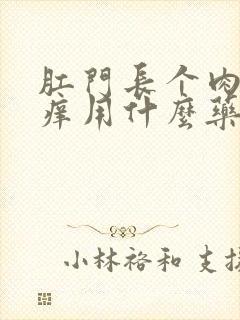 肛門長个肉
痒用什麼藥
小林裕和 支持